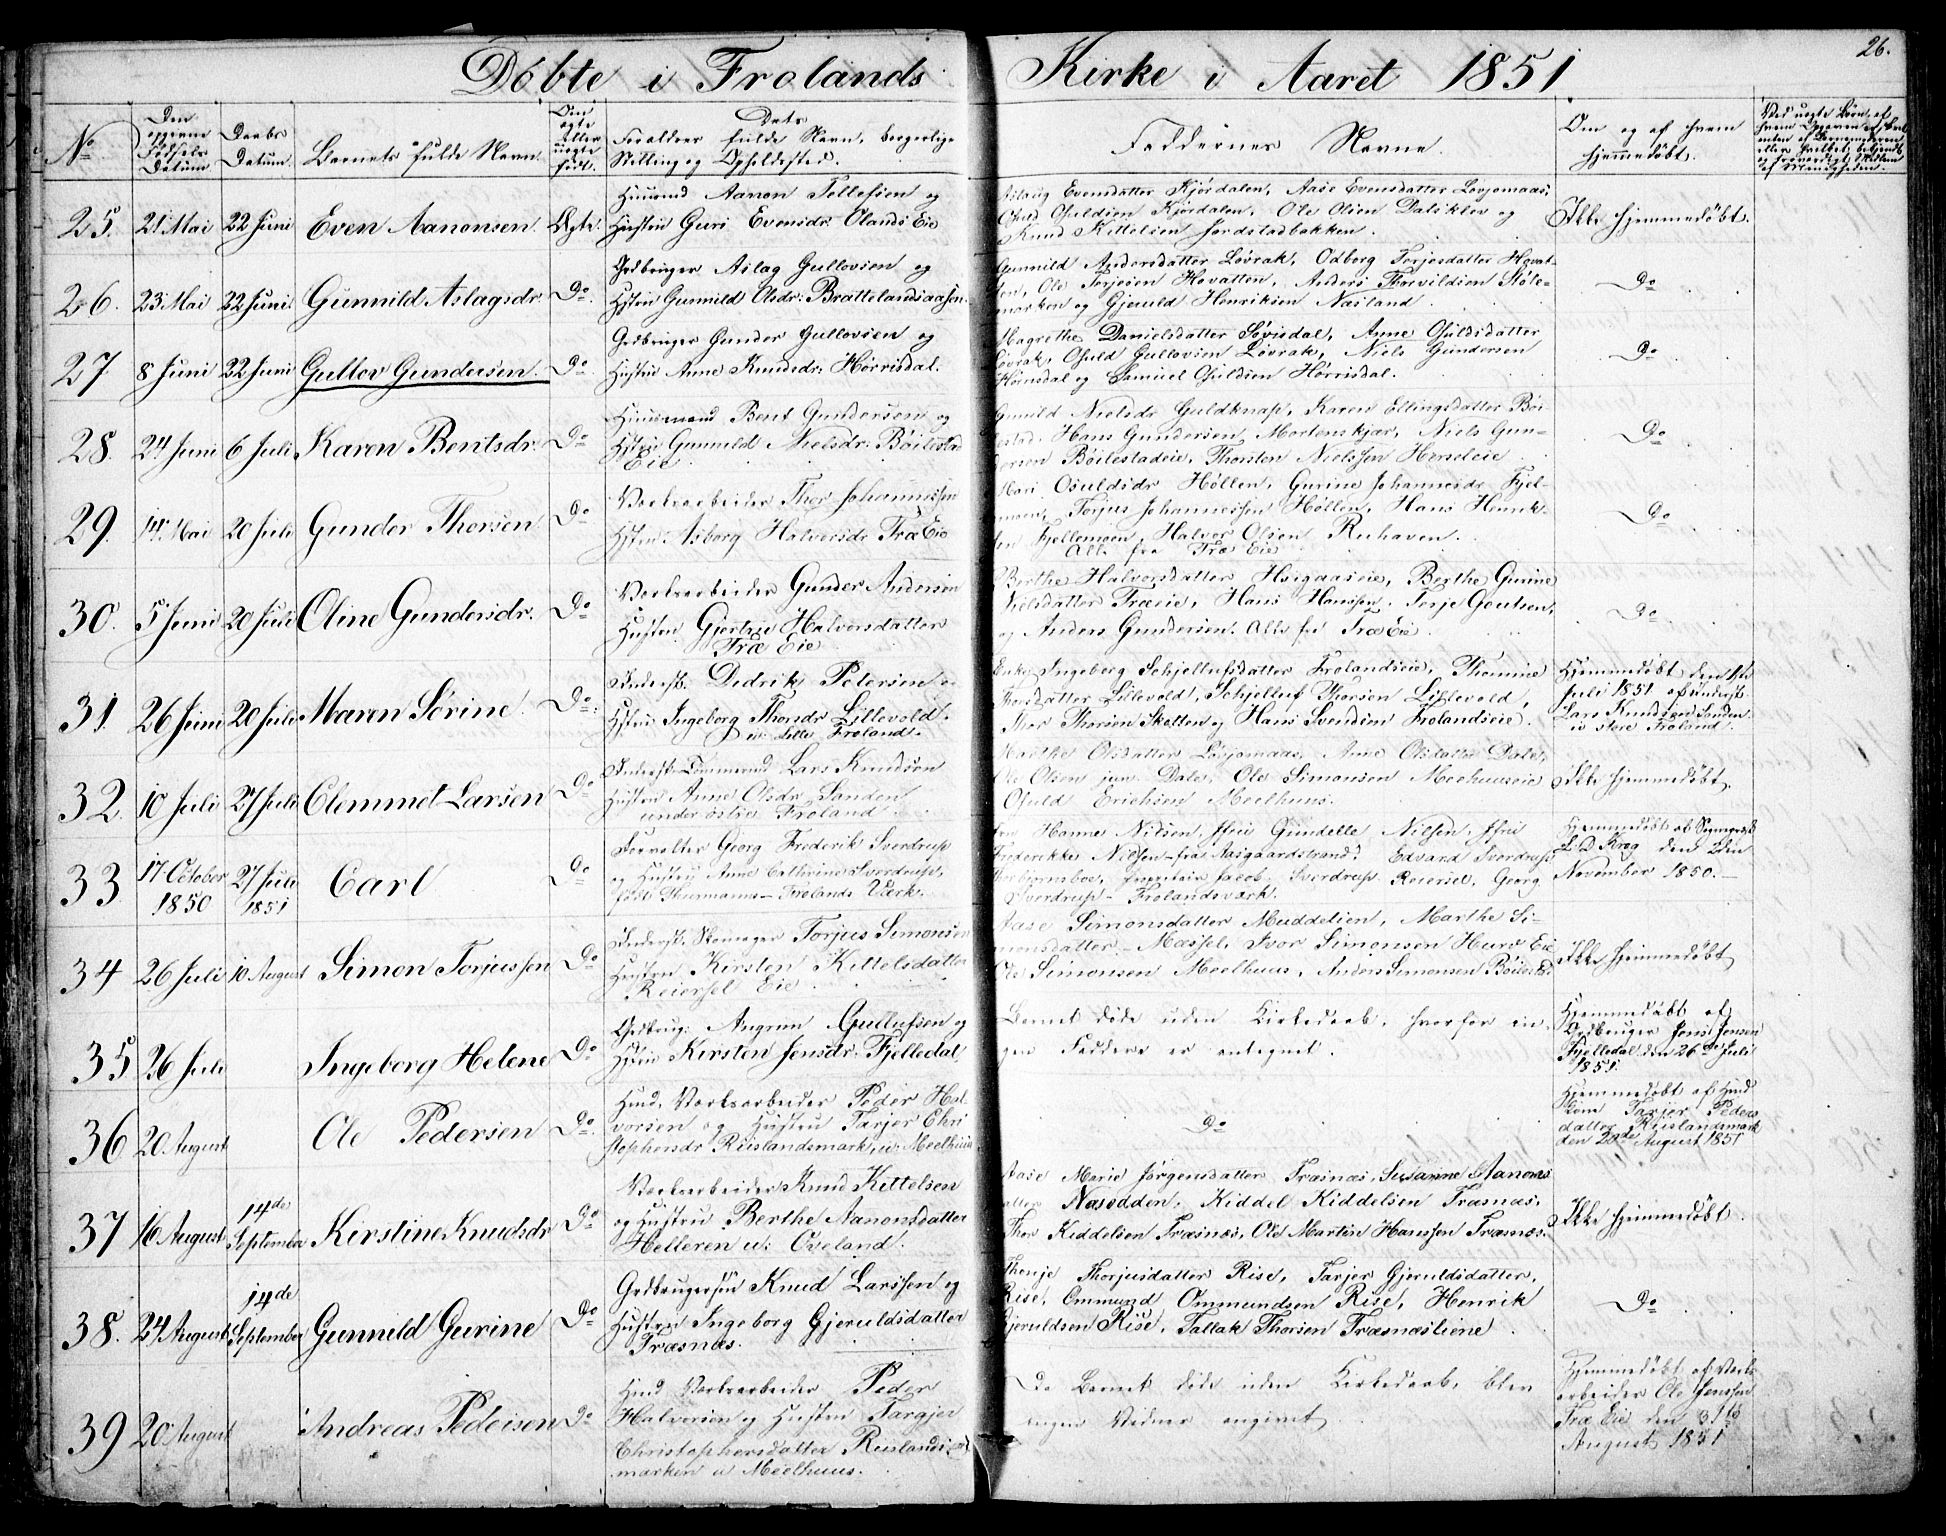 Döbte i Frolands Kirke i Aaret 1851
26.
No
Den opgivne Fødsels Datum
Daabs Datum.
Barnets fulde Navn.
Om ægte eller uægte født.
Dets
Forældres fulde Navn, borgerlige
Stilling og Opholdssted.
Faddernes Navne.
Om og af hvem
hjemmedøbt.
25. 21 Mai 22 Juni Even Aanonsen Ægte.
Huusmd Aanon Tellefsen og
Hustru Guri Evensdr. Olands Eie
Aslaug Evensdatter Kjørdalen, Aase Evensdatter Lovjomaas,
Osuld Osuldsen Kjørdalen, Ole Olsen Dalsklev og
Knud Kittelsen Jordstadbakken.
Ikke hjemmedøbt.
26. 23 Mai 22 Juni Gunnild Aslagsdr. Do
Grdbruger Aslag Gullovsen og
Hstru Gunnild Olsdr. Brattelandsaasen
Gunnild Andersdatter Løvrak, Odberg Torjesdatter Hovat-
ten, Ole Torjesen Hovatten, Anders Thorvildsen Støle-
marken og Gjeruld Henriksen Nasland.
Do
27. 8 Juni 22 Juni Gullov Gundersen. Do
Grdbruger Gunder Gullovsen og
Hustru Anne Knudsdr. Hørrisdal.
Magrethe Danielsdatter Søvisdal, Anne Osuldsdatter
Løvrak, Osuld Gullovsen Løvrak, Niels Gundersen
Hørrisdal og Samuel Osuldsen Hørrisdal.
Do
28. 24 Juni 6 Juli Karen Bentsdr. Do
Huusmand Bent Gundersen og
Hstru Gunnild Nielsdr. Böilestad
Eie
Gunild Nielsdr Guldknap, Karen Ellingsdatter Böi-
lestad, Hans Gundersen, Mortenskjær, Niels Gun-
dersen Böilestadeie, Thorsten Nielssen Heneleie
Do
29. 14 Mai 20 Juli Gunder Thorsen Do
Værksarbeider Thor Johannessen
Hstru Asborg Halvorsdr Træ Eie
Mari Osuldsdr Høllen, Gurine Johannesdr Fjel-
moen, Torjus Johannessen Høllen, Hans Henrik-
sen Fjellemoen, Halvor Olsen Ruhaven.
Alle fra Træ Eie
Do
30. 5 Juni 20 Juli Oline Gundersdr. Do
Værksarbeider Gunder Andersen
Hustru Gjertrie Halvorsdatter
Træ Eie
Berthe Halvorsdatter Haugaaseie, Berthe Gurine
Nielsdatter Træeie, Hans Hanssen, Terje Goutsen,
og Anders Gundersen. Alle fra Træ Eie
Do
31. 26 Juni 20 Juli Maren Sørine. Do
Inderst. Didrik Petersen og
Hstru Ingeborg Thorsdr Lillevold.
u: Lille Froland.
Enke Ingeborg Schjellufsdatter Frolandseie, Thomine
Thorsdatter Lillevold, Schjelluf Thorsen Lillevold,
Thor Thorsen Sketten og Hans Svendsen Frolandseie.
Hjemmedøbt den
Juli 1851 af Inderst.
Lars Knudsen Sanden
u store Froland.
32. 10 Juli 27 Juli Clemmet Larsen Do
Inderst Tømmermd Lars Knudsen
Hustru Anne Olsdr. Sanden
under østre Froland
Marthe Olsdatter Lovjomaas, Anne Olsdatter Dale,
Ole Olsen jun. Dale, Ole Simonsen Meelhuuseie
Osuld Erichsen Meelhuus.
Ikke hjemmedøbt.
33 17 October 1850 27 Juli 1851 Carl Do
Forvalter Georg Frederik Sverdrup
og Hustru Anne Cathrine Sverdrup,
født Thurmann - Frolands Værk.
Hanne Nielsen, Gundelle Nilsen,
Frederikke Nilsen - fra Aasgaardstrand? Edvard Sverdrup
Torbjørnsboe, Proprietair Jacob Sverdrup Reiersel, Georg
Sverdrup - Frolandsværk.
Hjemmedøbt af Sognepræst
Krog den 2den
November 1850. -
34 26 Juli 10 August Simon Torjussen Do
Inderst, Skomager Torjus Simonsen
Hustru Kirsten Kittelsdatter
Reiersel Eie
Aase Simonsdatter Muddelien, Marthe Si-
monsdatter - Mæssel, Ivor Simonsen Hurv Eie
Ole Simonsen Meelhuus, Anders Simonsen Böilestad
Ikke hjemmedøbt
35 26 Juli Ingeborg Helene Do
Grdbrug: Angrim Gullufsen og
Hstru Kirsten Jensdr. Fjelledal
Barnet døde uden Kirkedaab, hvorfor in-
gen Faddere er antegnet.
Hjemmedøbt af
Grdbruger Jens Jensen
Fjelledal den 26de Juli
1851.
36 20 August Ole Pedersen Do
Hmd, Værksarbeider Peder Hal-
vorsen og Hustru Tarjer Chri-
stophersdr Riislandsmark, u: Meelhuus
Do
Hjemmedøbt af Hmd
Tarjer Peders-
datter Riislandsmark
den 20de August 1851
37 16 August 14de September Kirstine Knudsdr Do
Værksarbeider Knud Kittelsen
og Hustru Berthe Aanonsdatter
Helleren u: Oveland.
Aase Marie Jørgensdatter Træsnæs, Susanne Aanons-
datter Næsodden, Kiddel Kiddelsen Træsnæs,
Thor Kiddelsen Træsnæs, Ole Martin Hanssen Træsnæs.
Ikke hjemmedøbt.
38. 24 August 14de September Gunnild Gurine Do
Grdbrugersøn Knud Larssen og
Hustru Ingeborg Gjeruldsdatter
Træsnæs.
Thonje Thorjusdatter Rise, Tarjer Gjeruldsdatter,
Rise, Ommund Ommundsen Rise, Henrik
Gjeruldsen Rise, Tallak Thorsen Træsnæsliene
Do
39 20 August Andreas Pedersen Do
Hmd Værksarbeider Peder
Halvorsen og Hustru Targjer
Christophersdatter Riislands-
marken u Meelhuus.
Da Barnet døde uden Kirkedaab, blev
ingen Vidner angivet
Hjemmedøbt af Værks-
arbeider Ole Jenssen
Træ Eie den 31te
August 1851